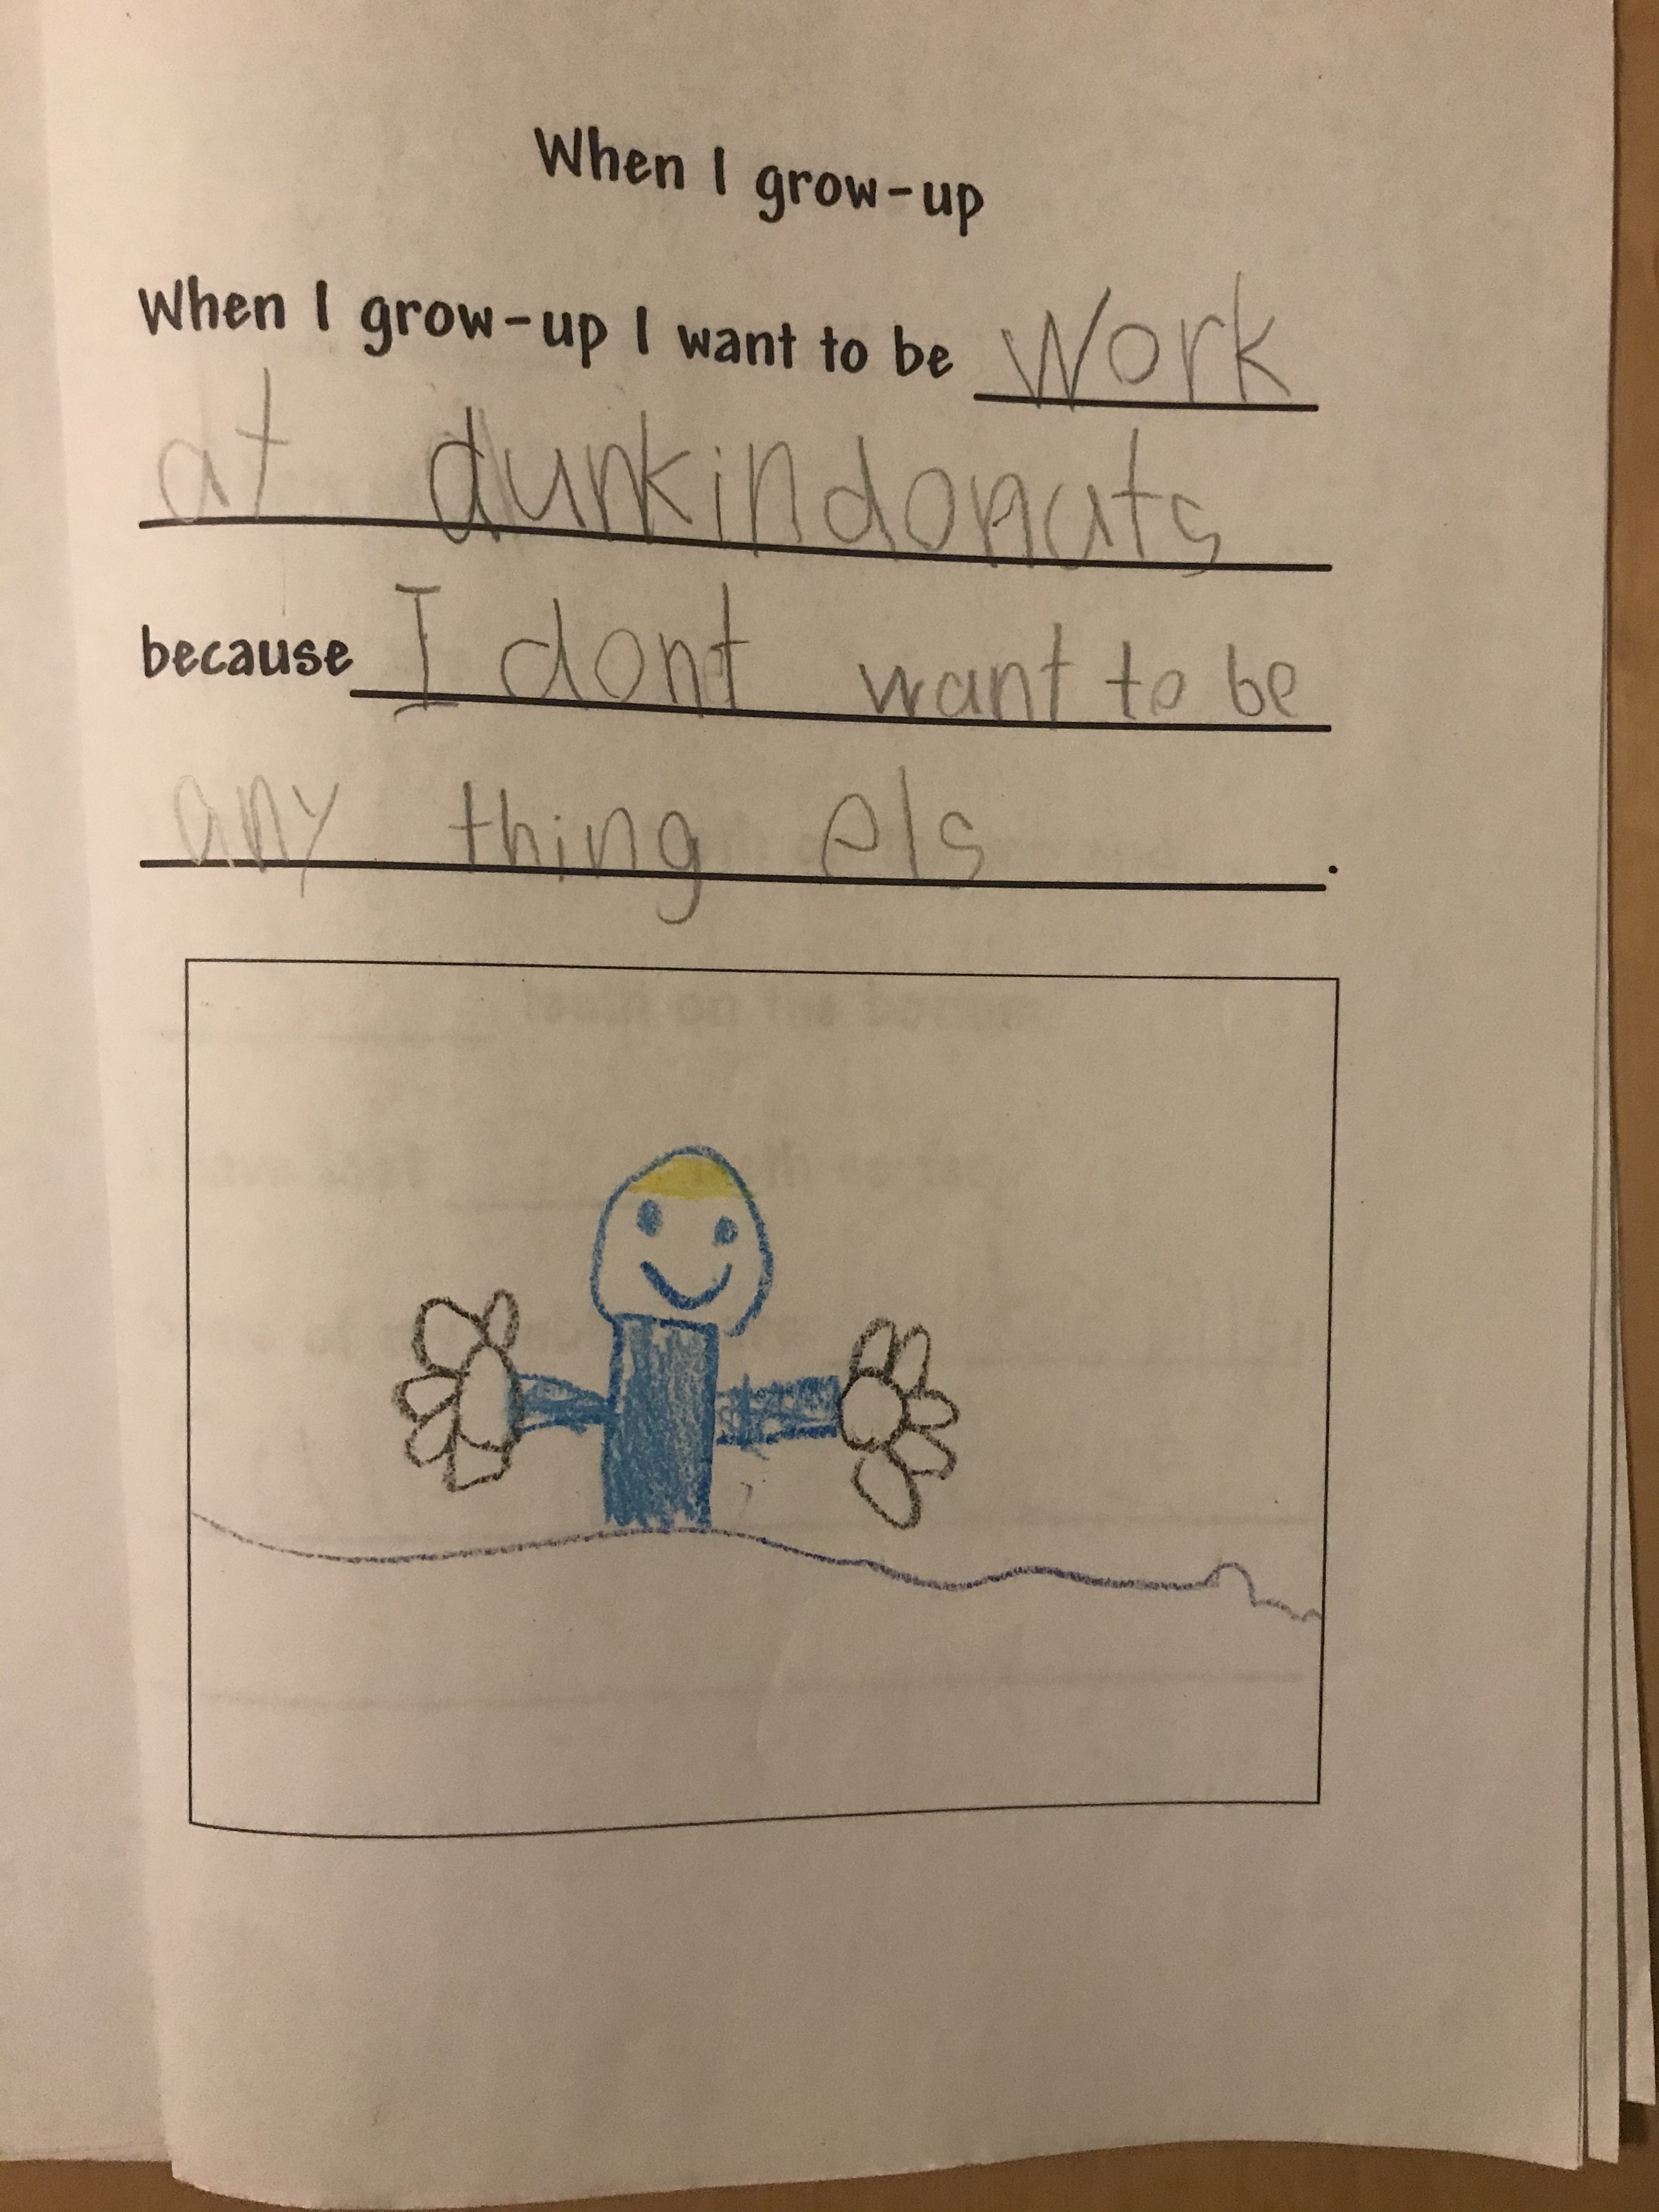 When I grow-up
When I grow-up I want to be Work
at dunkindonuts
because I dont want to be
any thing els.
teeth on the bottom